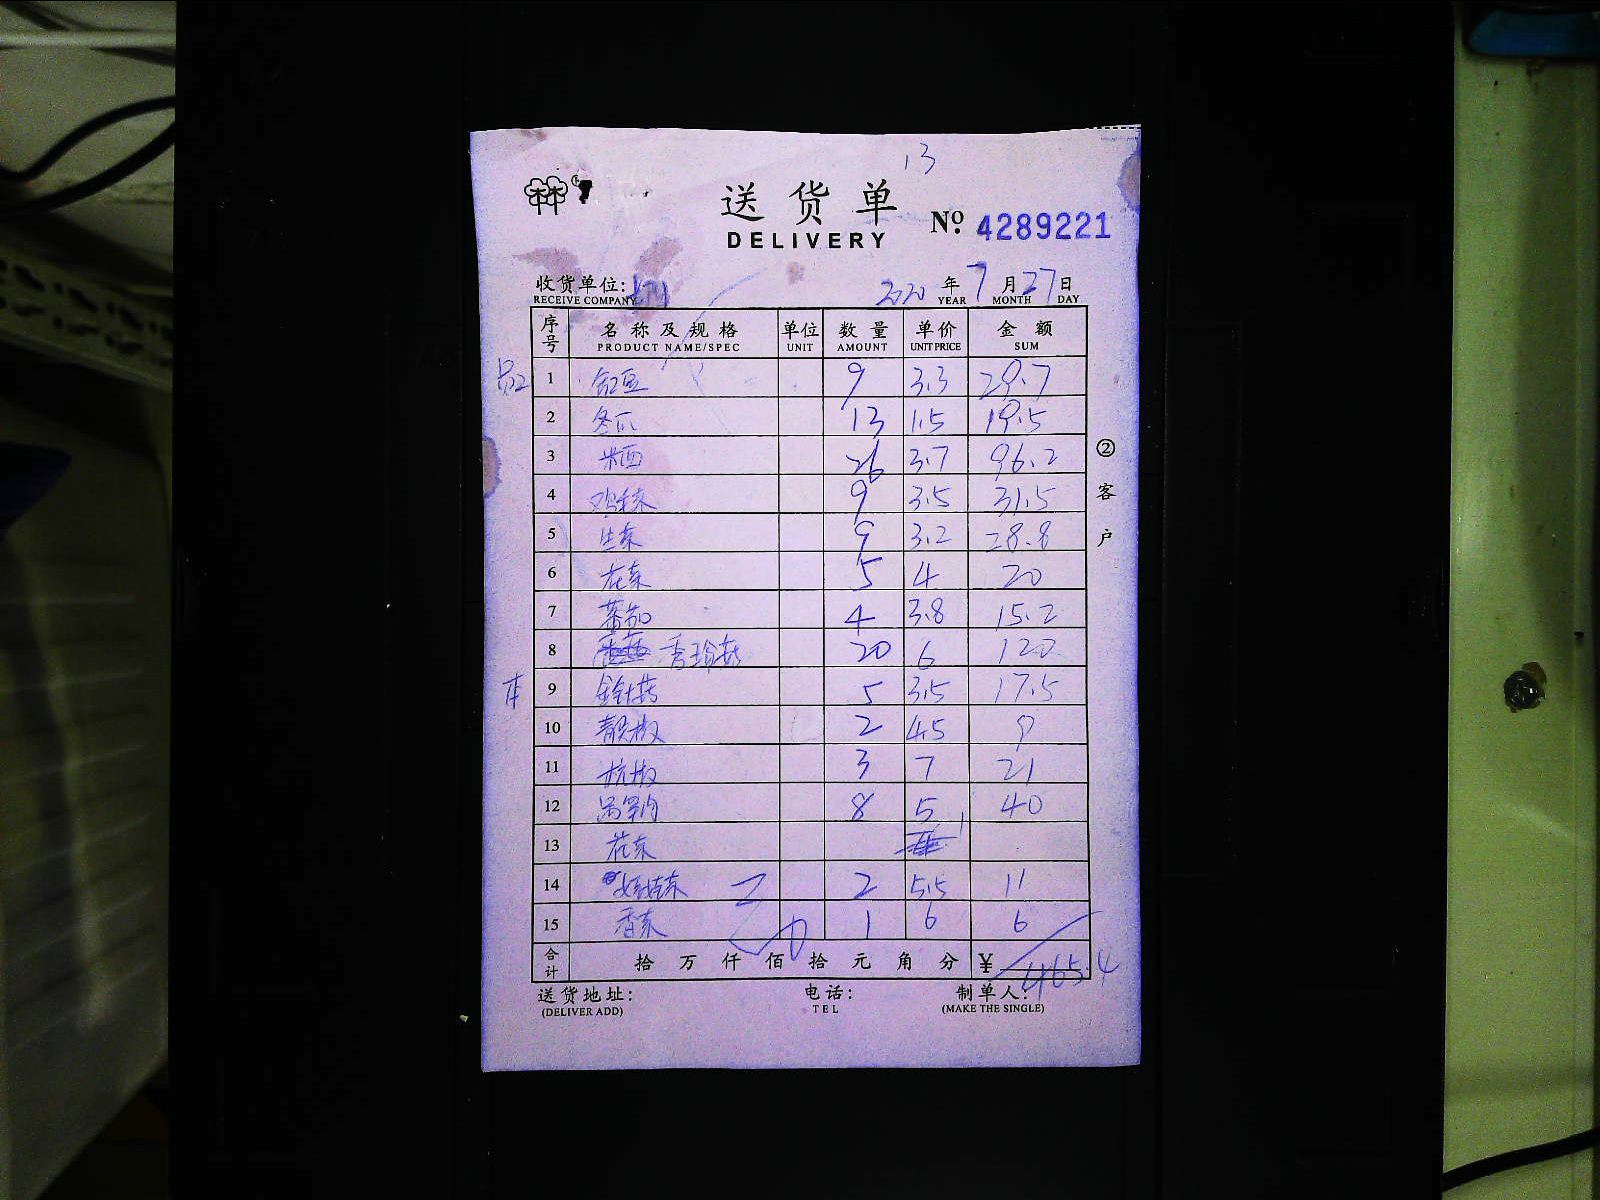 13
送货单
DELIVERY
№ 4289221
收货单位: 2020 年 7 月 27 日
RECEIVE COMPANY YEAR MONTH DAY
序号 名称及规格 单位 数量 单价 金额
PRODUCT NAME/SPEC UNIT AMOUNT UNIT PRICE SUM
1 豆 9 3.3 29.7
2 冬瓜 13 1.5 19.5
3 26 3.7 96.2
4 9 3.5 31.5
5 生菜 9 3.2 28.8
6 花菜 5 4 20
7 蕃茄 4 3.8 15.2
8 秀珍菇 20 6 120
9 金针菇 5 3.5 17.5
10 青尖椒 2 4.5 9
11 杭椒 3 7 21
12 8 5 40
13 花菜
14 娃娃菜 2 5.5 11
15 香菜 1 6 6
合计 拾 万 仟 佰 拾 元 角 分 ¥ 465.4
② 客户
送货地址: 电话: 制单人:
(DELIVER ADD) TEL (MAKE THE SINGLE)